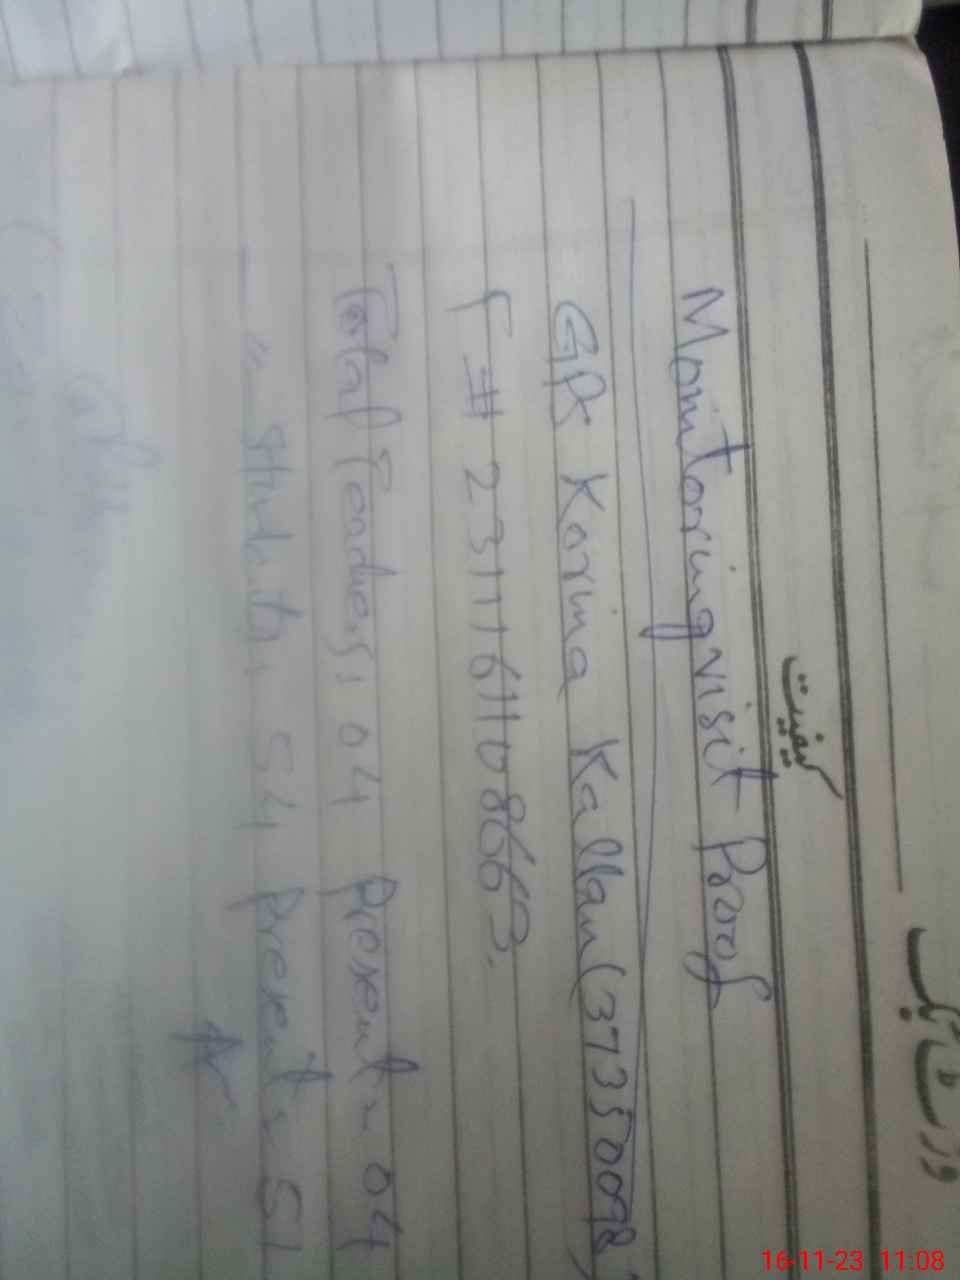 کیفیت
Monitoring visit Proof
GPS Karima Kallan (37350098)
T # 2311161108663.
Total Teachers: 04 Present = 04
" Students: 54 Present = 51
16-11-23 11:08